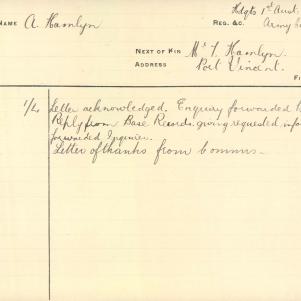 NAME A. Hamlyn
Hdqts 1st Aust.
REG. &C. Army
NEXT OF KIN Mr. T. Hamlyn.
ADDRESS Port Vincent.
1/4 Letter acknowledged. Enquiry forwarded
Reply from Base Records giving requested
forwarded Inquirer.
Letter of thanks from